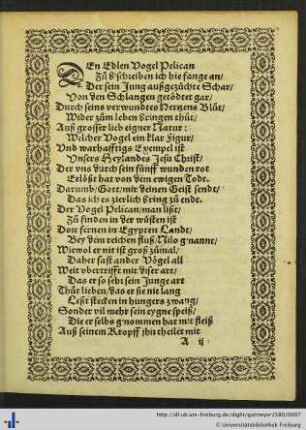 DEn Edlen Vogel Pelican
Zů bschreiben ich hie fange an/
Der sein Jung außgezüchte Schar/
Von den Schlangen getödtet gar/
Durch seins verwundtes Hertzens Blůt/
Wider zům leben bringen thůt/
Auß grosser lieb eigner Natur:
Welcher Vogel ein klar figur/
Vnd warhafftigs Exempel ist
Vnsers Heylandes Jesu Christ/
Der vns durch sein fünff wunden rot
Erlößt hat von dem ewigen Todt.
Darumb/Gott/mit deinen Geist sendt/
Das ich es zierlich bring zu endt.
Der Vogel Pelican/man lißt/
Zů finden in der wůsten ist
Dort fernen in Egypten Landt/
Bey dem reichen fluß/Nilo g'nannt/
Wiewol er nit ist groß zůmal/
Daher fast ander Vögel all
Weit vbertrifft mit diser art/
Das er so sehr sein Junge art
Thůt lieben/das er sie nit lang
Leßt stecken in hungers zwang/
Sonder vil mehr sein eygne speiß/
Die er selbs g'nommen hat mit fleiß
Auß seinem Kropff jhn theilet mit
A ij
http://dl.ub.uni-freiburg.de/diglit/gutmeyer1580/0007
© Universitätsbibliothek Freiburg